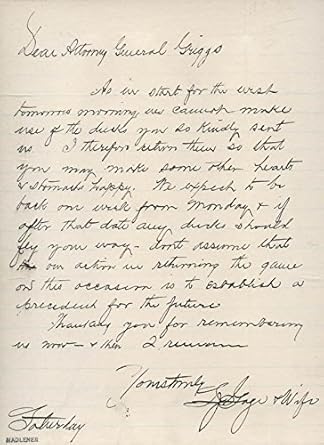 Dear Attorney General Griggs
As we start for the west
tomorrow morning we cannot make
use of the ducks you so kindly sent
us. I therefore return them so that
you may make some other hearts
& stomachs happy. We expect to be
back one week from Monday & if
after that date any ducks should
fly your way - don't assume that
our action in returning the game
on this occasion is to establish a
precedent for the future
Thanking you for remembering
us now - & then I remain
Yours truly
Gage & Wife
Saturday
MADLENER